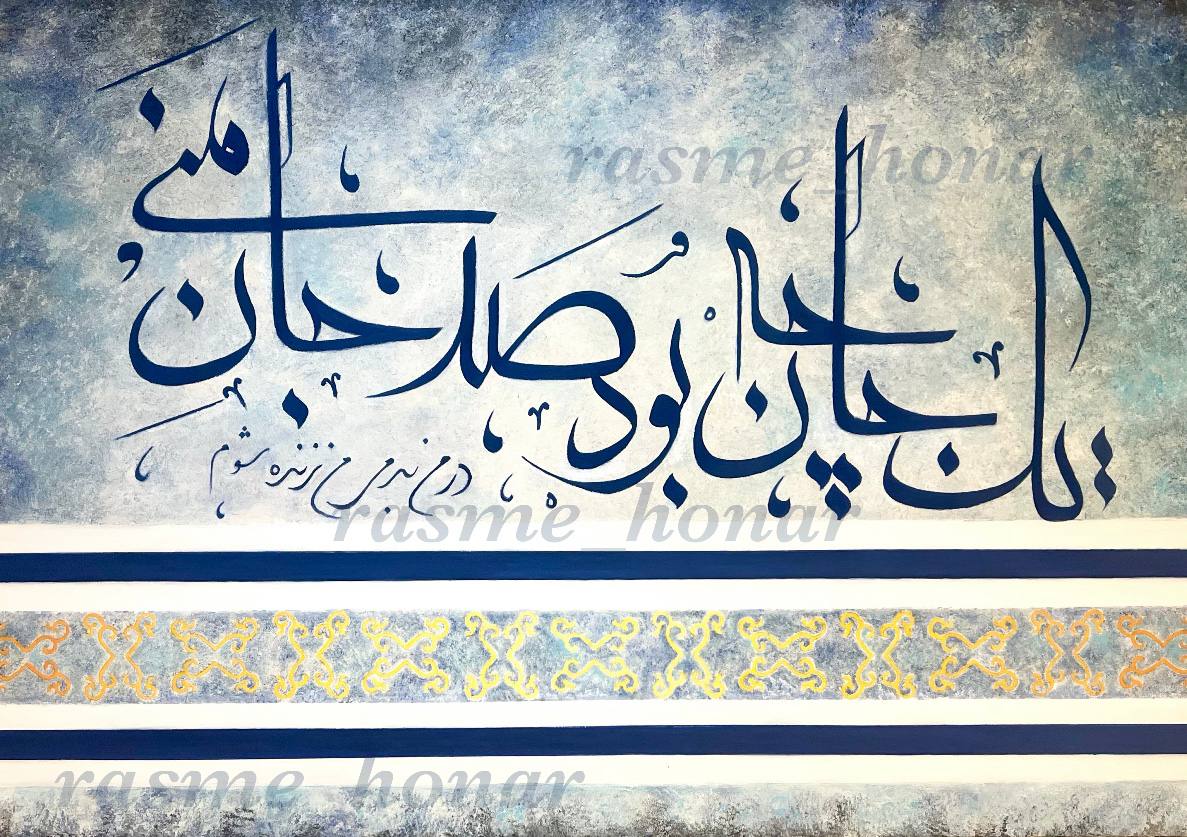 rasme_honar
یک جان چه بود صد جان منی
در من بدمی من زنده شوم
rasme_honar
rasme_honar